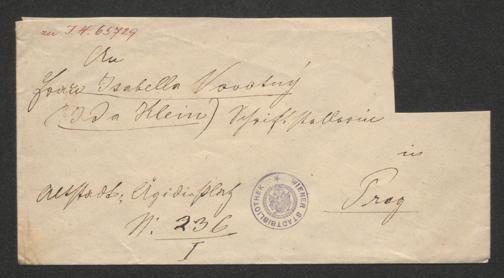 zu I.N. 65729
An
Frau Isabella Novotný
(Ida Klein) Schriftstellerin
in
Altstadt, Ägidiplatz
Prag
N: 236
I
WIENER STADTBIBLIOTHEK